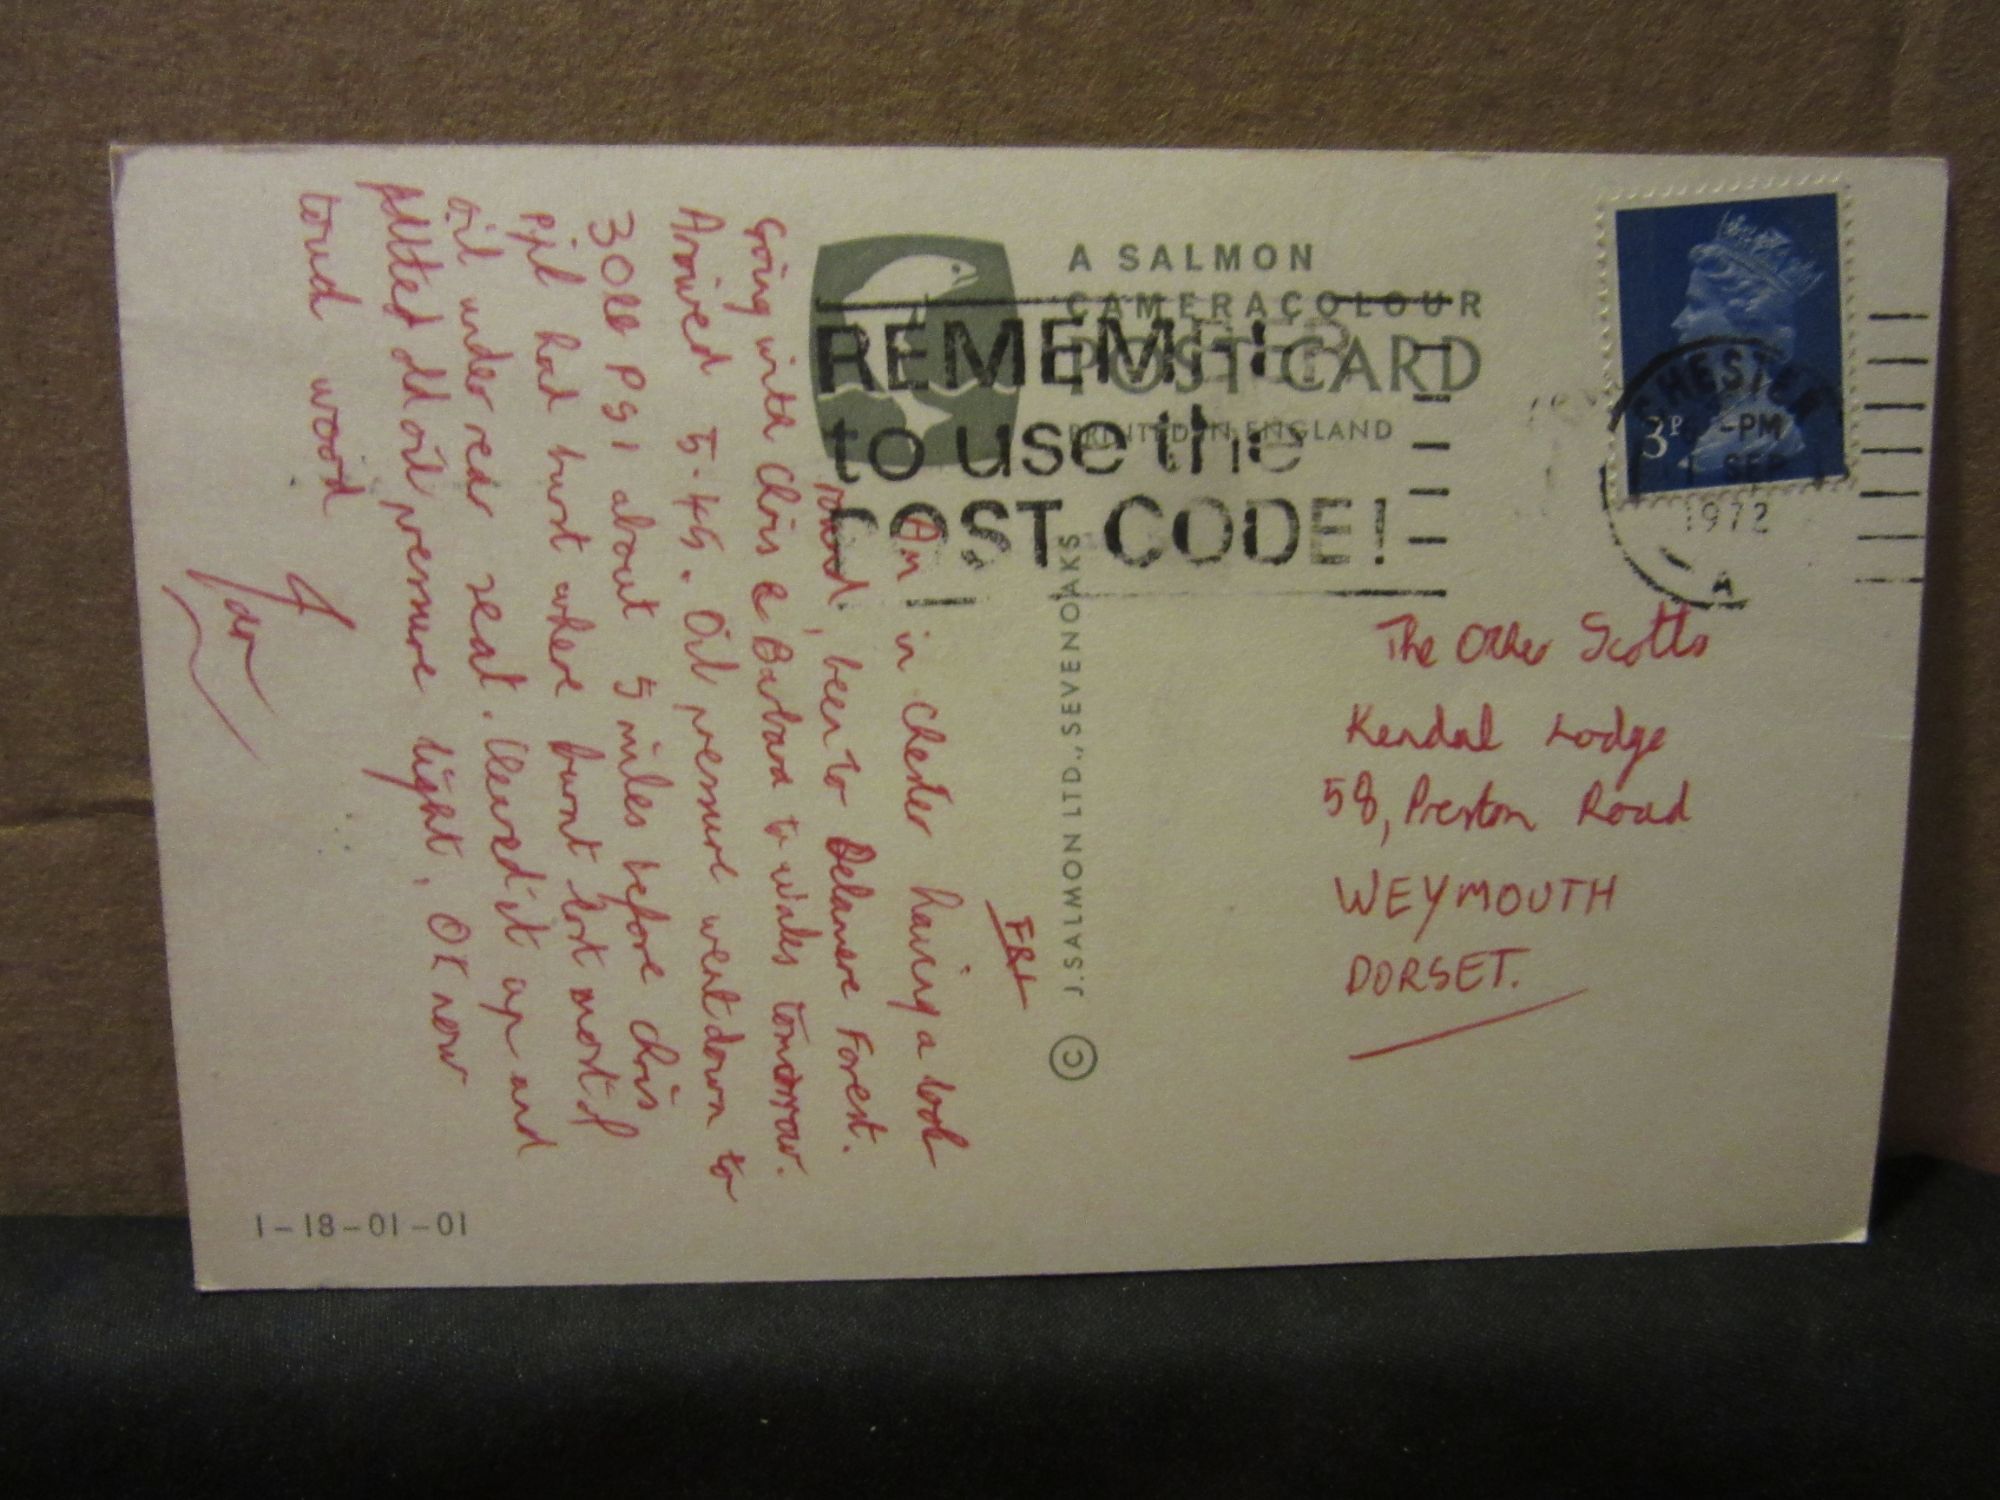 A SALMON
CAMERACOLOUR
POST CARD
PRINTED IN ENGLAND
REMEMBER
to use the
POST CODE!
CHESTER
-PM
SEP
1972
A
3P
FRI
Am in Chester having a look
round, been to Delamere Forest.
Going with Chris & Barbara to Wales tomorrow.
Arrived 5.45. Oil pressure went down to
30 lb PSI about 5 miles before Chris
pipe had burst where burnt lost most of
oil under rear seat. Cleared it up and
fitted old oil pressure light. OK now
touch wood
Ian
The Other Scotts
Kendal Lodge
58, Preston Road
WEYMOUTH
DORSET.
© J. SALMON LTD., SEVENOAKS
1-18-01-01